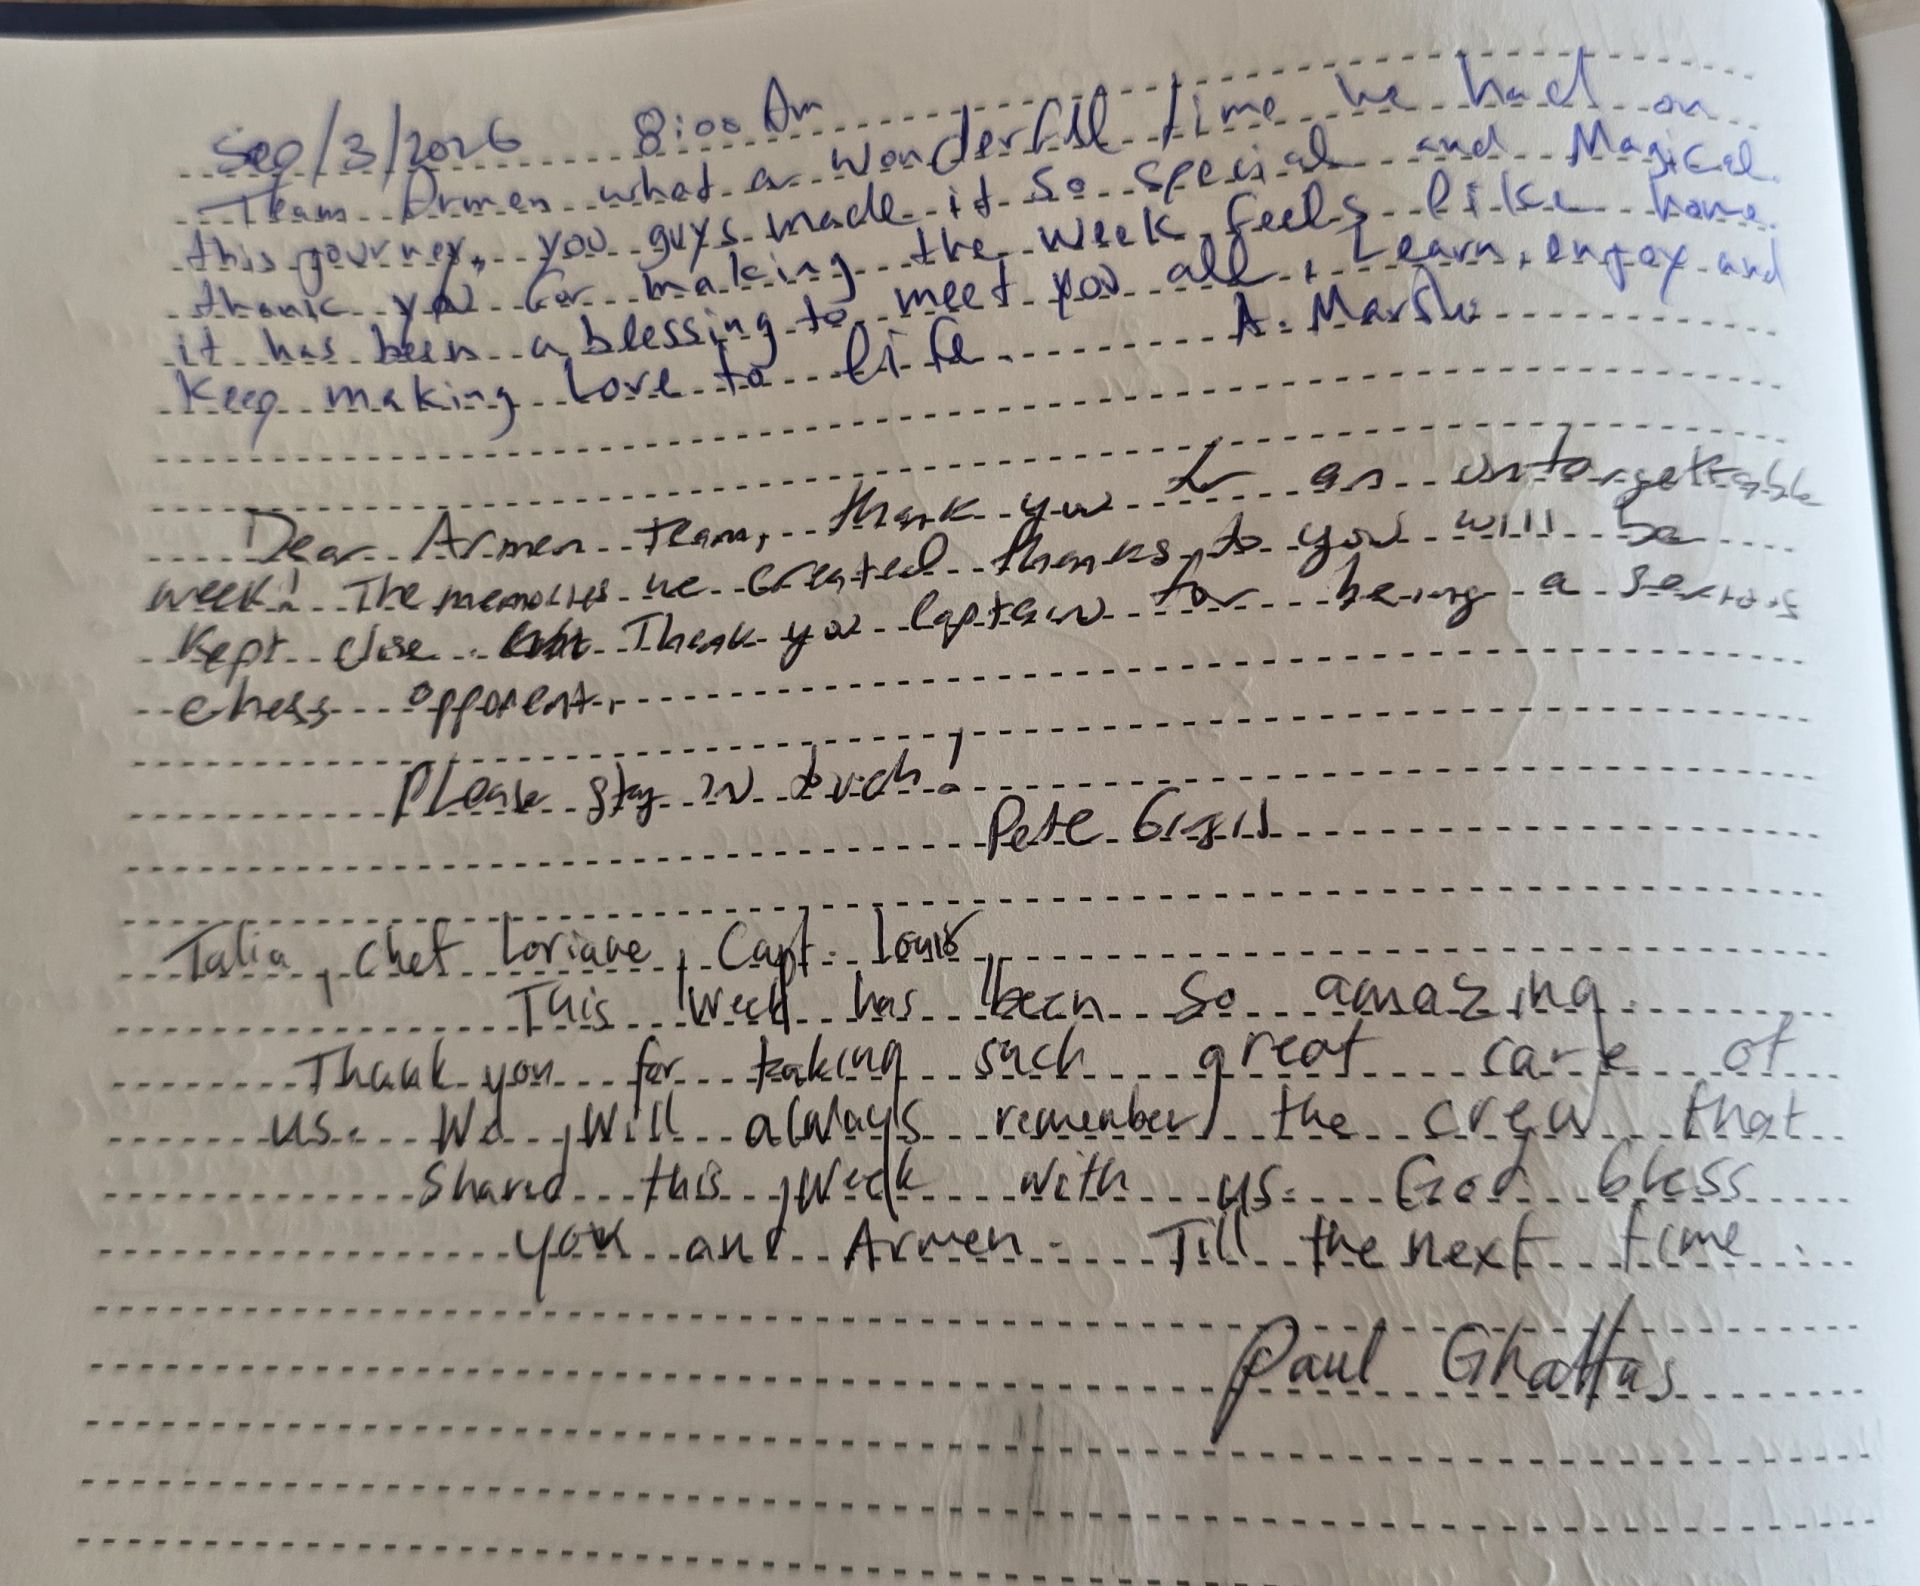 Sep/3/2026 8:00 Am
Team Armen what a wonderfull time he had on
this journey, you guys made it so special and Magical.
thank you for making the week feels like home.
it has been a blessing to meet you all, Learn, enjoy and
Keep making Love to life. A.
Dear Armen team, thank you for an unforgettable
week! The memories we created thanks to you will be
kept close. Thank you Captain for being a serious
chess opponent.
Please stay in touch!
Pete
Talia, Chef Loriane, Capt. Louis,
This Week has been so amazing.
Thank you for taking such great care of
us. We will always remember the crew that
Shared this Week with us. God bless
you and Armen. Till the next time.
Paul Ghattas